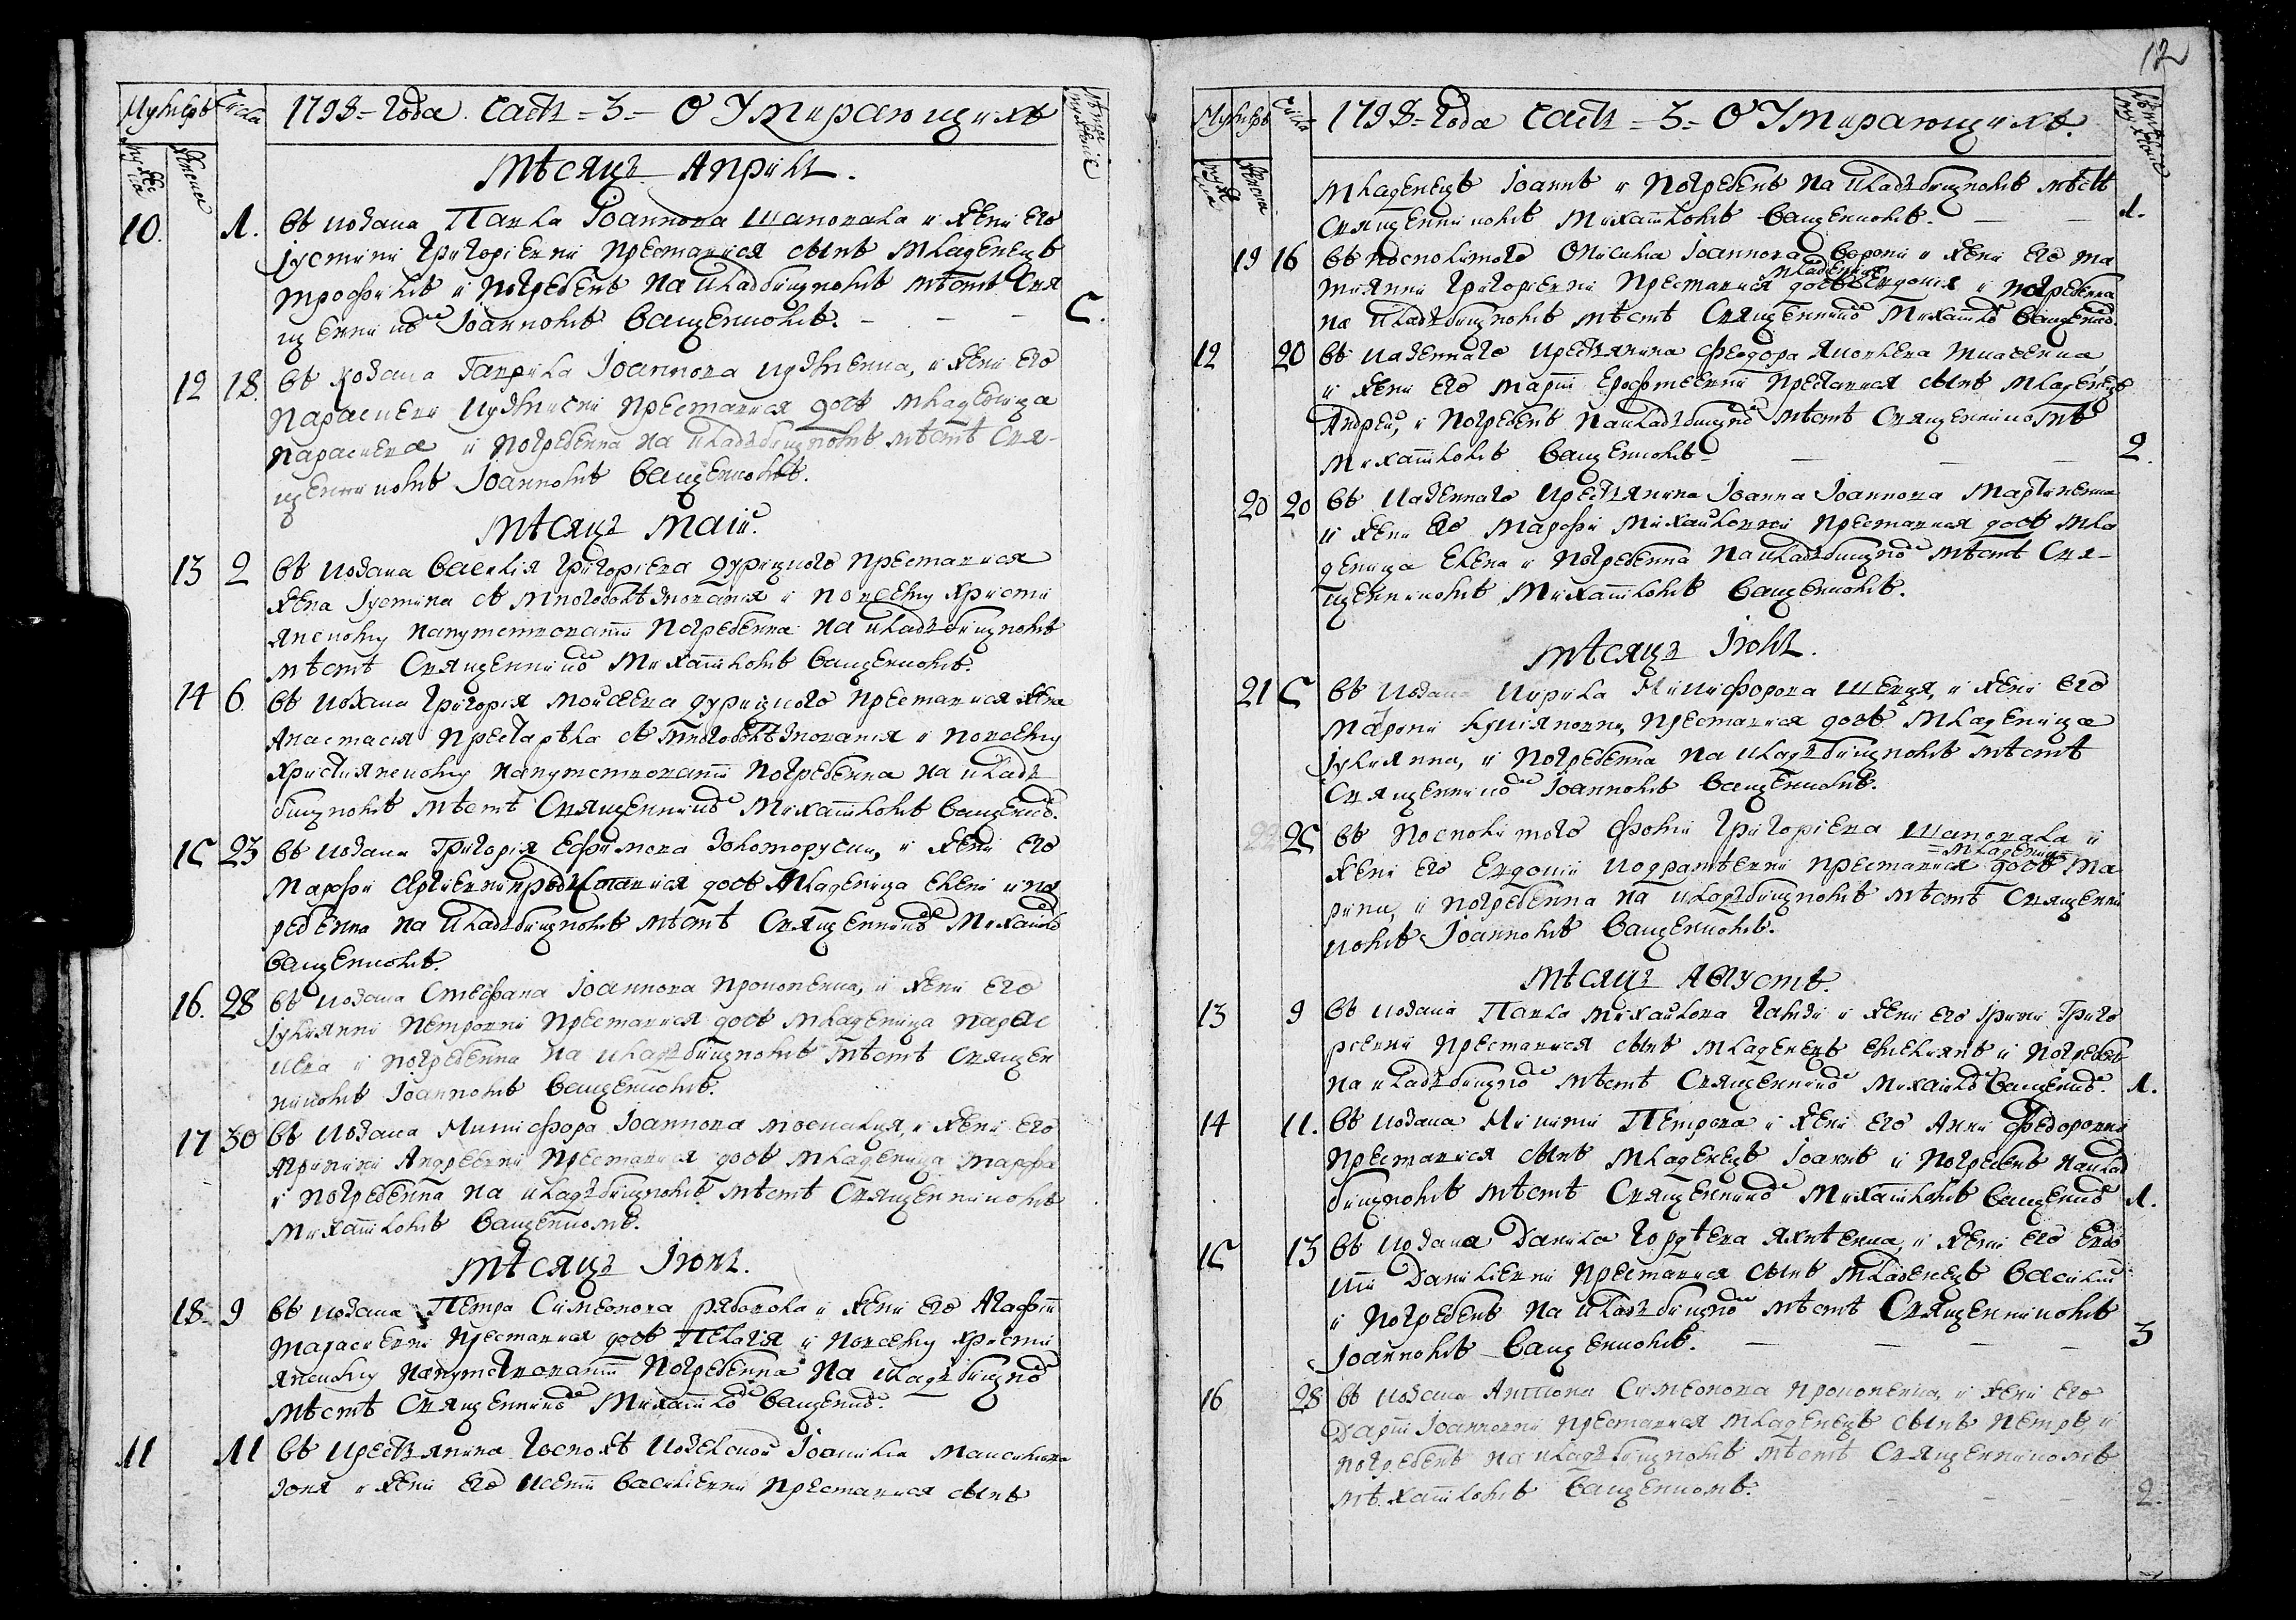 Умершихъ
Числа
1798 = Года. Часть = 3 = О Умирающихъ
мужеска
женска
Мѣсяцъ Априль.
10. 1. въ козака Павла Іоаннова Шаповала и жени его
Іустини Григоріевни преставися сынъ младенецъ
Трофимъ и погребенъ на кладбищномъ мѣстѣ Свя
щенникомъ Іоанномъ Ващенкомъ. 5.
12 18. въ козака Гаврила Іоаннова и жени его
Параскеви преставися дочь младеница
Параскева и погребенна на кладбищномъ мѣстѣ Свя-
щенникомъ Іоанномъ Ващенкомъ.
Мѣсяцъ Маий.
13 2 въ козака Василія Григоріева Дурицкого преставися
жена Іустина съ многоболѣзнованія и по всему Христи
янскому напутствованіи погребенна на кладбищномъ
мѣстѣ Священникомъ Михаиломъ Ващенкомъ.
14 6. въ козака Григорія Моисеева Дурицкого преставися жена
Анастасія престарѣла съ многоболѣзнованія и по всему
Християнскому напутствованіи погребенна на клад
бищномъ мѣстѣ Священникомъ Михаиломъ Ващенкомъ.
15 23 въ козака Григорія Ефимова Золоторуски, и жени его
Марфи преставися дочь младеница Елена и пог
ребенна на кладбищномъ мѣстѣ Священникомъ Михаиломъ
Ващенкомъ.
16. 28 въ козака Стефана Іоаннова Прокопенка, и жени его
Іулиянни Петровни преставися дочь младеница Парас
кева и погребенна на кладбищномъ мѣстѣ Священ
никомъ Іоанномъ Ващенкомъ.
17 30 въ козака Никифора Іоаннова Москалця, и жени его
Агрипини Андреевни преставися дочь младеница Марфа
и погребенна на кладбищномъ мѣстѣ Священникомъ
Михаиломъ Ващенкомъ.
Мѣсяцъ Іюнь.
18. 9 въ козака Петра Симеонова Рябовола и жени его Агафіи
преставися дочь Пелагія и по всему Христи
янскому напутствованіи погребенна на кладбищномъ
мѣстѣ Священникомъ Михаиломъ Ващенкомъ.
11 11 въ крестянина Госпожѣ Іоаникія
и жени его Ксеніи Василіевни преставися сынъ
12
Умершихъ
Числа
1798 = Года Часть = 3 = О Умирающихъ.
мужеска
женска
младенецъ Іоаннъ и погребенъ на кладбищномъ мѣстѣ
Священникомъ Михаиломъ Ващенкомъ. 1.
19 16 въ посполитого Онисима Іоаннова Ворони и жени его Та
тиянни Григоріевни преставися дочь младеница Евдокия и погребенна
на кладбищномъ мѣстѣ Священникомъ Михаиломъ Ващенкомъ.
12 20 въ казенного крестянина Феодора Яковлева Ткаченка,
и жени его Маріи Ерофтеевни преставися сынъ младенецъ
Андрей, и погребенъ на кладбищномъ мѣстѣ Священникомъ
Михаиломъ Ващенкомъ 2.
20 20 въ казенного крестянина Іоанна Іоаннова Мартиненка
и жени его Марфи Михайловни преставися дочь мла
деница Елена и погребенна на кладбищномъ мѣстѣ Свя-
щенникомъ Михаиломъ Ващенкомъ.
Мѣсяцъ Іюль.
21 5 въ козака Кирила Никифорова Шевця, и жени его
Марини преставися дочь младеница
Іулиянна, и погребенна на кладбищномъ мѣстѣ
Священникомъ Іоанномъ Ващенкомъ.
22 25 въ посполитого Фоми Григоріева Шаповала и
жени его Евдокіи Кодратѣевни преставися дочь младеница Ма
рина, и погребенна на кладбищномъ мѣстѣ Священни
комъ Іоанномъ Ващенкомъ.
Мѣсяцъ Августъ.
13 9 въ козака Павла Михайлова и жени его Ірини Григо
риевни преставися сынъ младенецъ Емелиянъ и погребенъ
на кладбищномъ мѣстѣ Священникомъ Михаиломъ Ващенкомъ. 1.
14 11. въ козака Никити Петрова и жени его Анни Федоровни
преставися сынъ младенецъ Іоаннъ и погребенъ на клад
бищномъ мѣстѣ Священникомъ Михаиломъ Ващенкомъ 1.
15 13 въ козака Данила Гордѣева Яхненка, и жени его Евдо
кіи Данилиевни преставися сынъ младенецъ Василий
и погребенъ на кладбищномъ мѣстѣ Священникомъ
Іоанномъ Ващенкомъ. 3
16 28 въ козака Антона Симеонова Прокопенка, и жени его
Даріи Іоанновни преставися младенецъ сынъ Петръ и
погребенъ на кладбищномъ мѣстѣ Священникомъ
Михаиломъ Ващенкомъ. 2.